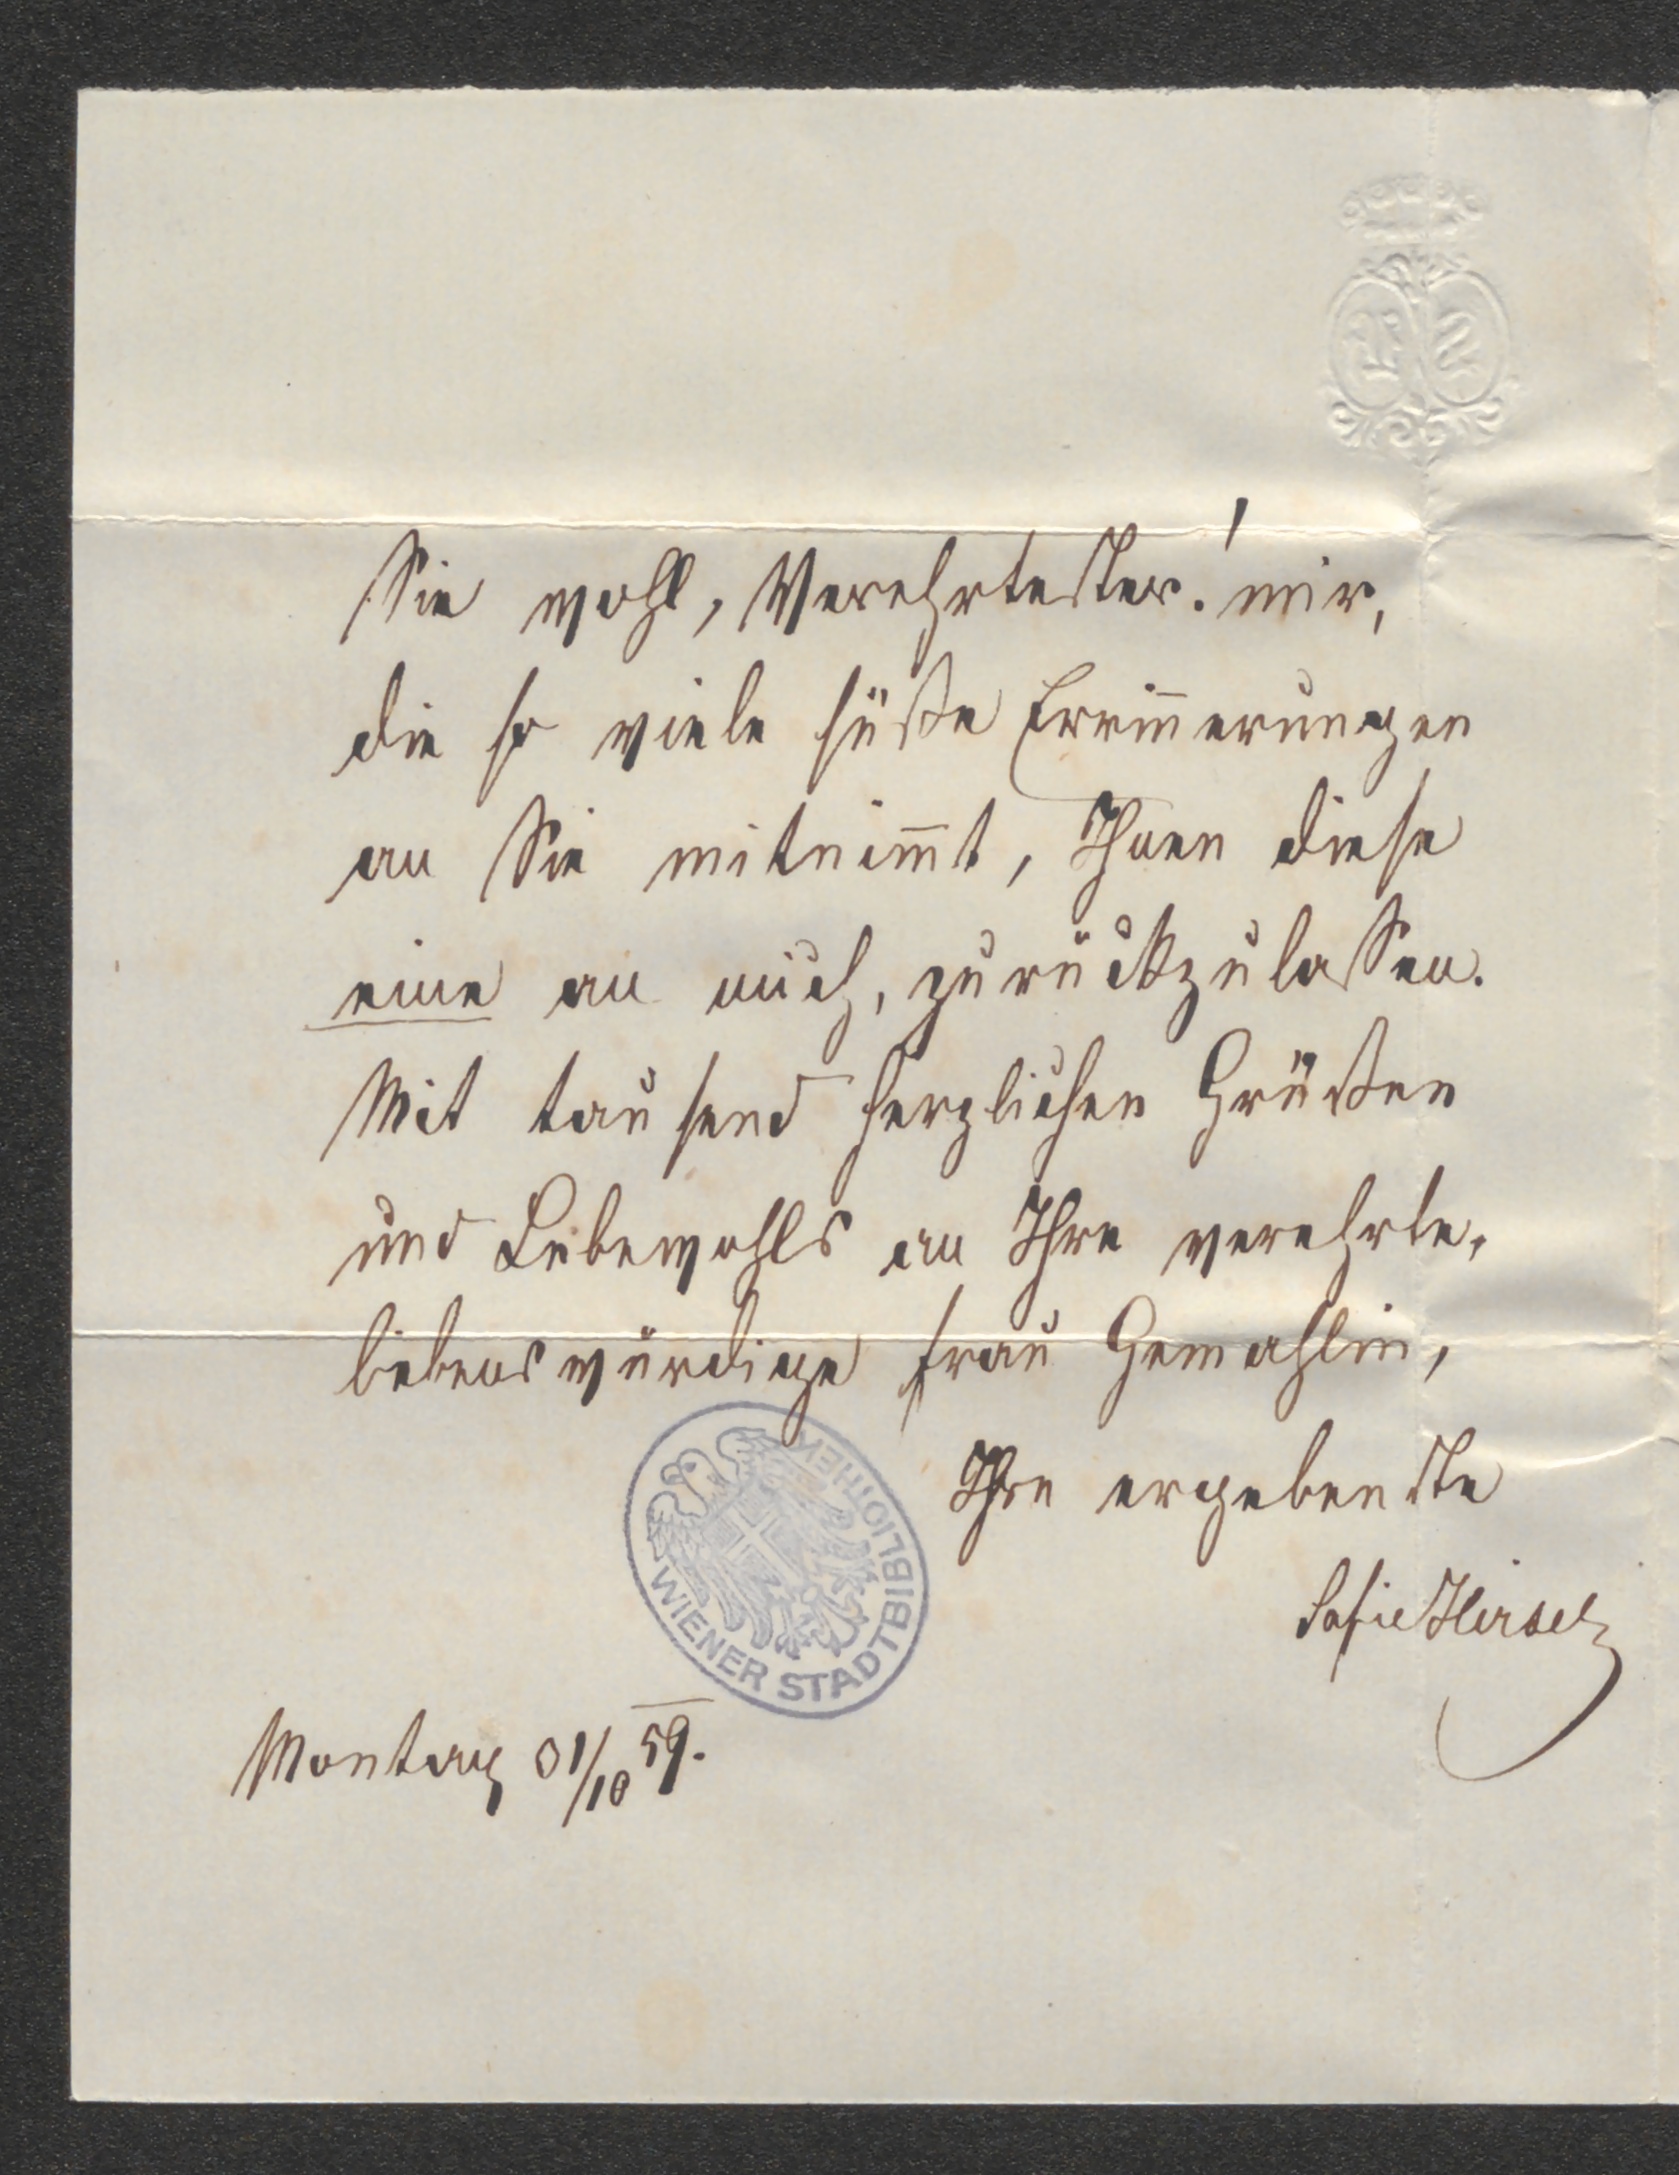 Sie wohl, Verehrtester! mir,
die so viele süße Errin̄erungen
an Sie mitnim̄t, Ihnen diese
eine an mich, zurückzulassen.
Mit tausend herzlichen Grüßen
und Lebewohls an Ihre verehrte,
liebenswürdige Frau Gemahlin,
Ihre ergebenste
Sofie
WIENER STADTBIBLIOTHEK
Montag 31/10 59.